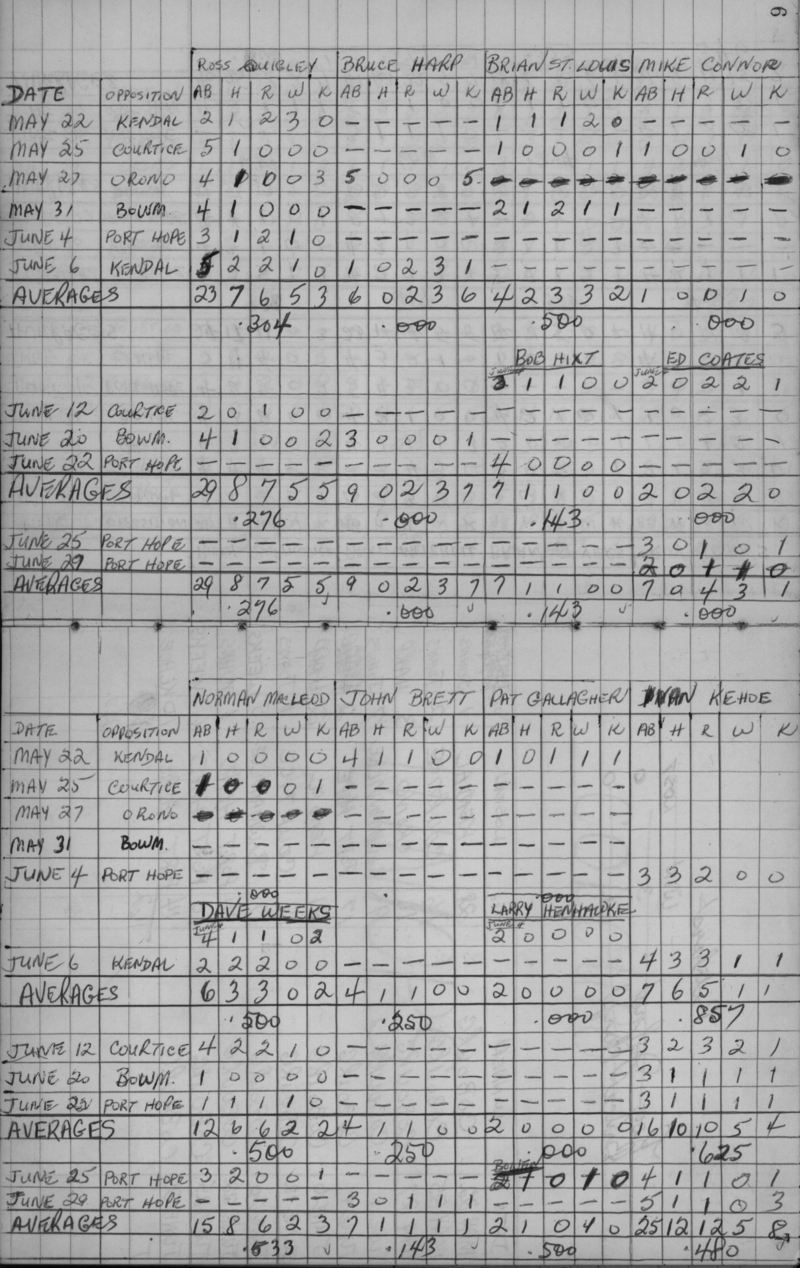 9
ROSS QUIGLEY BRUCE HARP BRIAN ST. LOUIS MIKE CONNOR
DATE OPPOSITION AB H R W K AB H R W K AB H R W K AB H R W K
MAY 22 KENDAL 2 1 2 3 0 — — — — — 1 1 1 2 0 — — — — —
MAY 25 COURTICE 5 1 0 0 0 — — — — — 1 0 0 0 1 1 0 0 1 0
MAY 27 ORONO 4 1 0 0 3 5 0 0 0 5 — — — — — — — — — —
MAY 31 BOWM. 4 1 0 0 0 — — — — — 2 1 2 1 1 — — — — —
JUNE 4 PORT HOPE 3 1 2 1 0 — — — — — — — — — — — — — — —
JUNE 6 KENDAL 5 2 2 1 0 1 0 2 3 1 — — — — — — — — — —
AVERAGES 23 7 6 5 3 6 0 2 3 6 4 2 3 3 2 1 0 0 1 0
.304 .000 .500 .000
BOB HIXT ED COATES
JUNE 4 3 1 1 0 0 JUNE 2 0 2 2 1
JUNE 12 COURTICE 2 0 1 0 0 — — — — — — — — — — — — — — —
JUNE 20 BOWM. 4 1 0 0 2 3 0 0 0 1 — — — — — — — — — —
JUNE 22 PORT HOPE — — — — — — — — — — 4 0 0 0 0 — — — — —
AVERAGES 29 8 7 5 5 9 0 2 3 7 7 1 1 0 0 2 0 2 2 0
.276 .000 .143 .000
JUNE 25 PORT HOPE — — — — — — — — — — — — — — — 3 0 1 0 1
JUNE 29 PORT HOPE — — — — — — — — — — — — — — — 2 0 1 1 0
AVERAGES 29 8 7 5 5 9 0 2 3 7 7 1 1 0 0 7 0 4 3 1
.276 .000 .143 .000
NORMAN MACLEOD JOHN BRETT PAT GALLAGHER IVAN KEHOE
DATE OPPOSITION AB H R W K AB H R W K AB H R W K AB H R W K
MAY 22 KENDAL 1 0 0 0 0 4 1 1 0 0 1 0 1 1 1
MAY 25 COURTICE 1 0 0 0 1 — — — — — — — — — —
MAY 27 ORONO — — — — — — — — — — — — — — —
MAY 31 BOWM. — — — — — — — — — — — — — — —
JUNE 4 PORT HOPE — — — — — — — — — — — — — — — 3 3 2 0 0
.000 .000
DAVE WEEKS LARRY
JUNE 4 4 1 1 0 2 JUNE 4 2 0 0 0 0
JUNE 6 KENDAL 2 2 2 0 0 — — — — — — — — — — 4 3 3 1 1
AVERAGES 6 3 3 0 2 4 1 1 0 0 2 0 0 0 0 7 6 5 1 1
.500 .250 .000 .857
JUNE 12 COURTICE 4 2 2 1 0 — — — — — — — — — — 3 2 3 2 1
JUNE 20 BOWM. 1 0 0 0 0 — — — — — — — — — — 3 1 1 1 1
JUNE 22 PORT HOPE 1 1 1 1 0 — — — — — — — — — — 3 1 1 1 1
AVERAGES 12 6 6 2 2 4 1 1 0 0 2 0 0 0 0 16 10 10 5 4
.500 .250 .000 .625
JUNE 25 PORT HOPE 3 2 0 0 1 — — — — — 2 1 0 1 0 4 1 1 0 1
JUNE 29 PORT HOPE — — — — — 3 0 1 1 1 — — — — — 5 1 1 0 3
AVERAGES 15 8 6 2 3 7 1 1 1 1 2 1 0 1 0 25 12 12 5 8
.533 .143 .500 .480